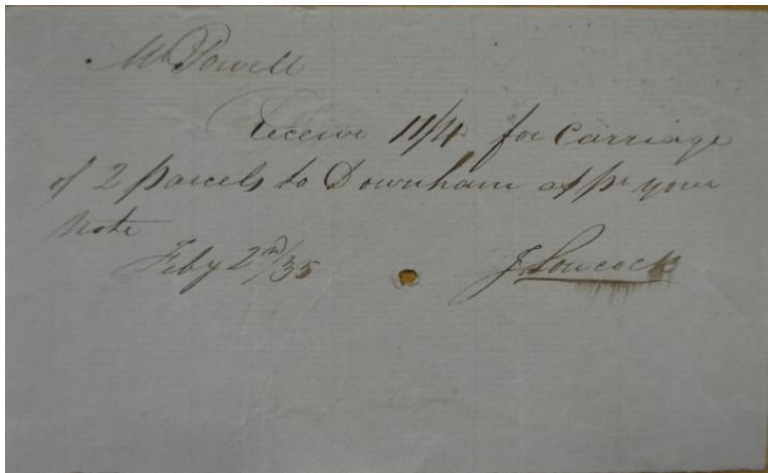 Mr Powell
Receive 11/4 for Carriage
of 2 parcels to Downham as pr your
Note
Feby 2nd/35 J Loucock